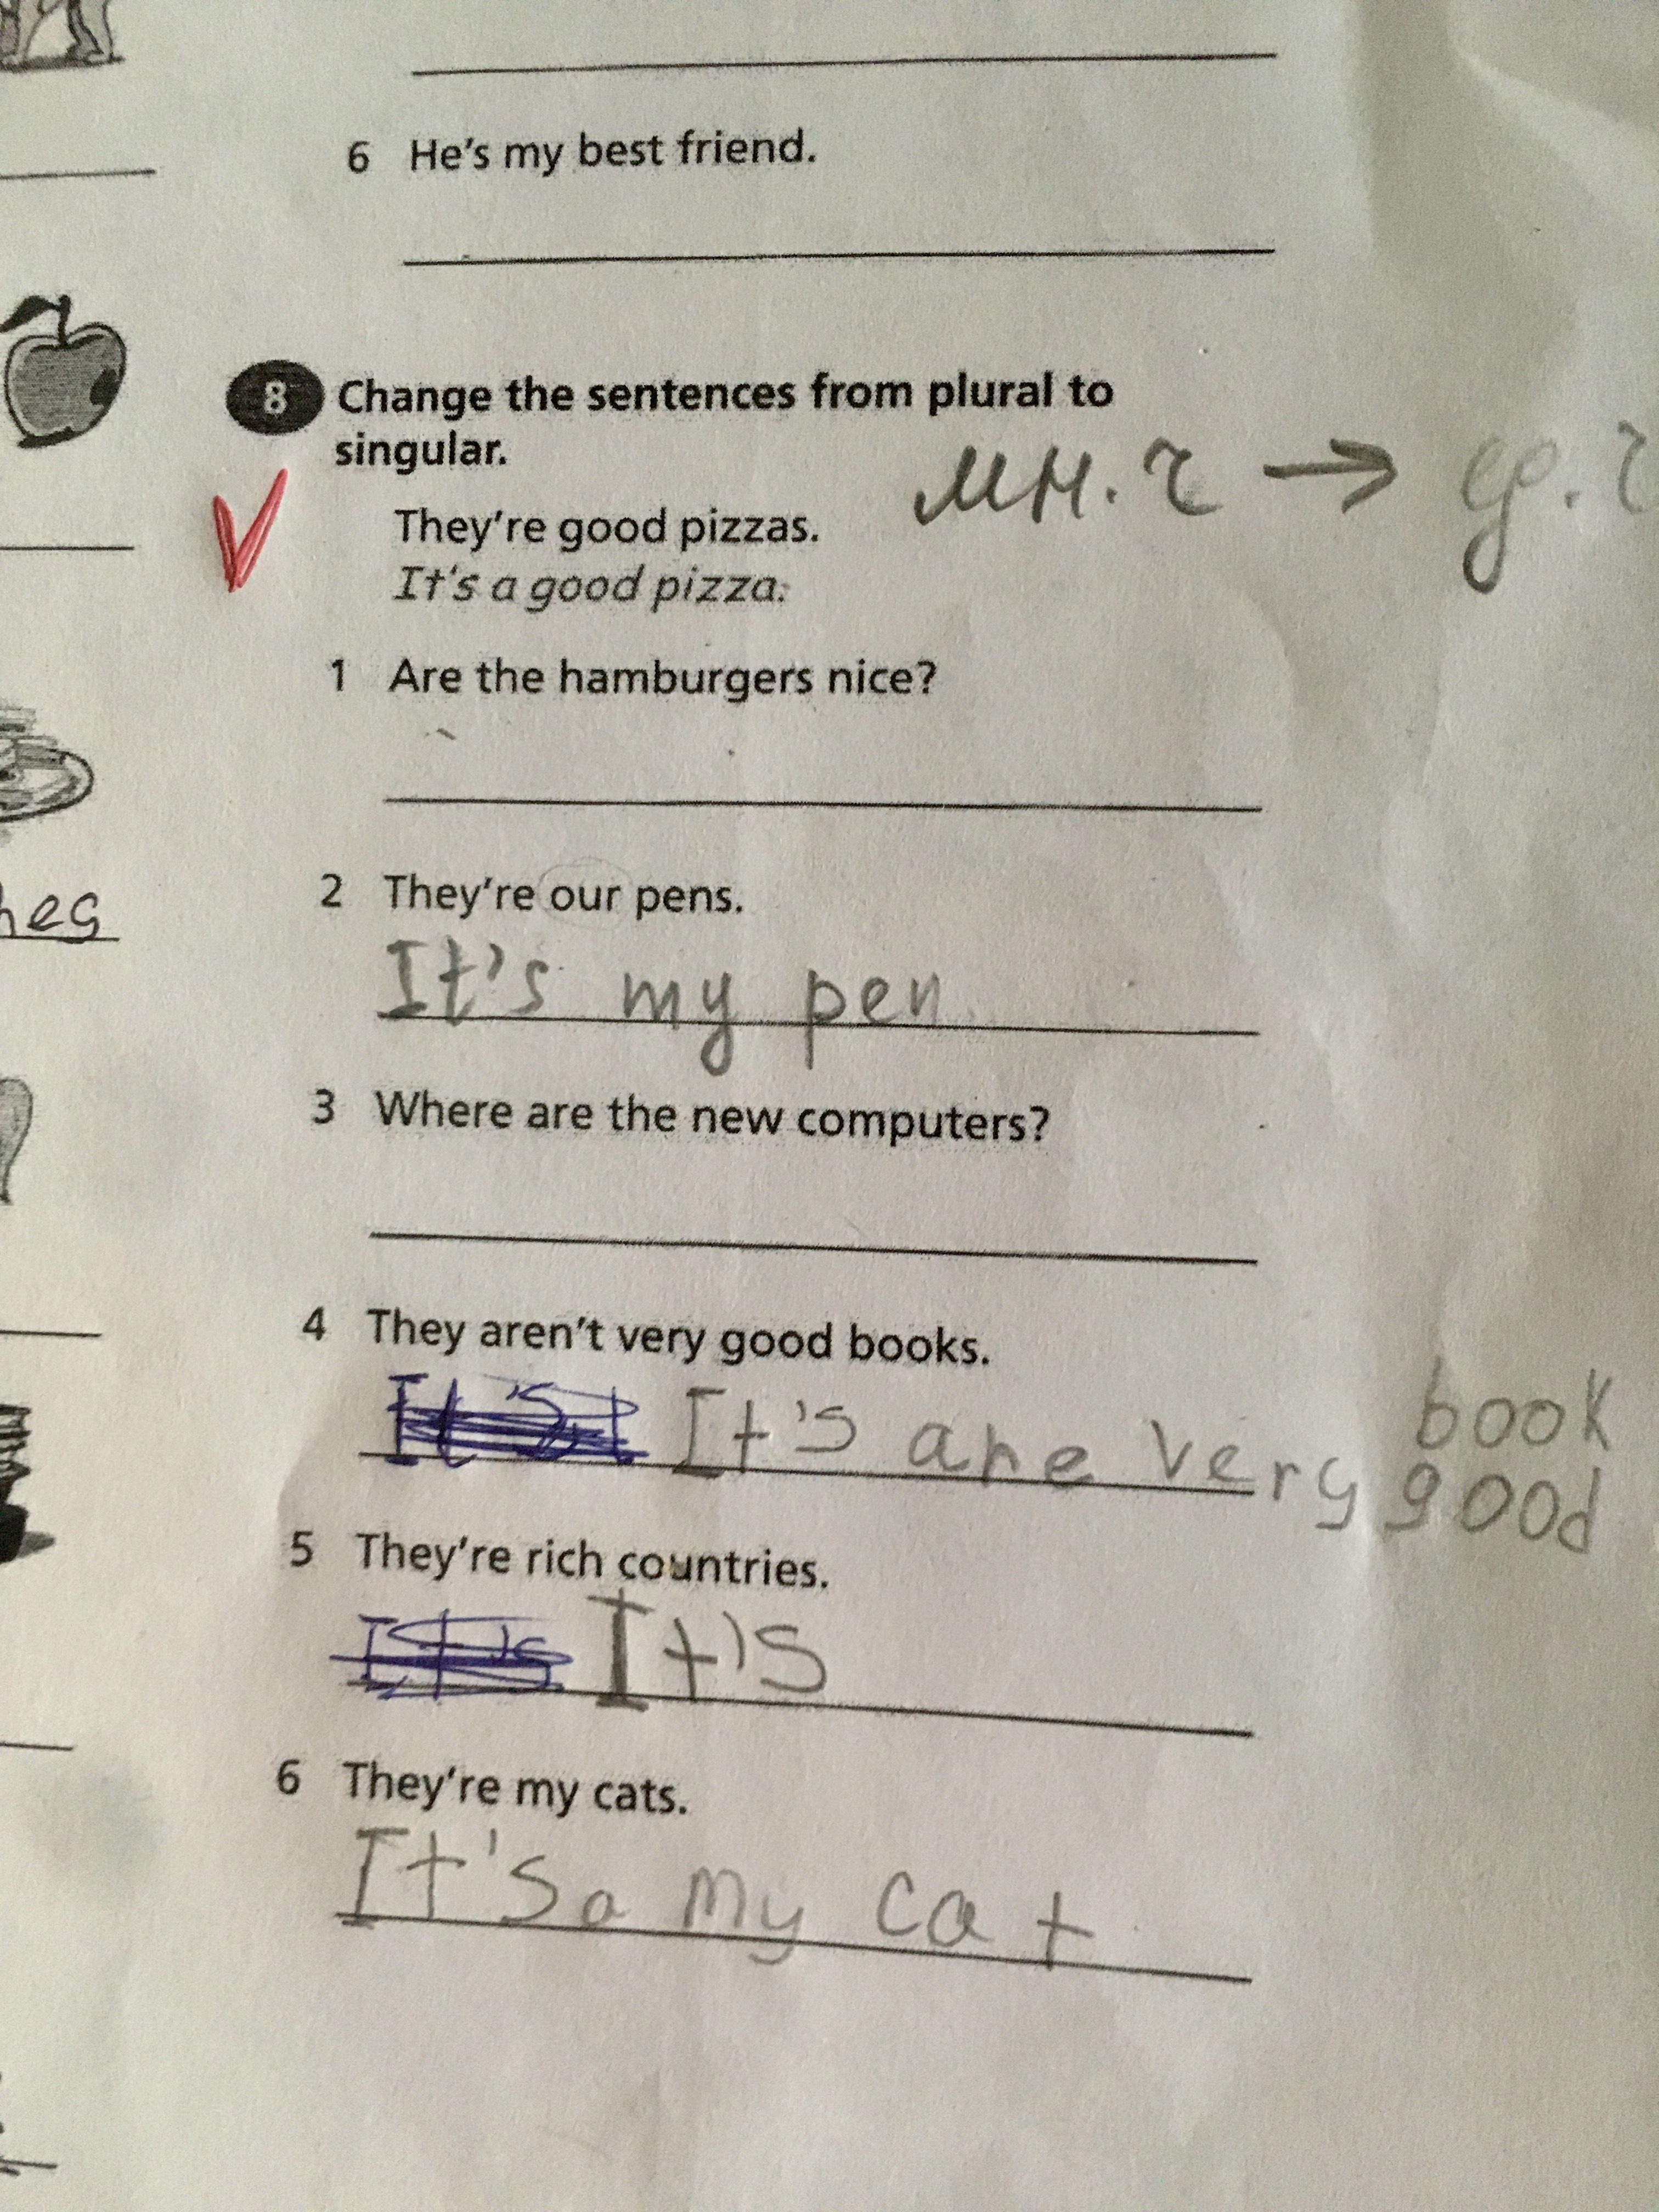 6 He's my best friend.
8 Change the sentences from plural to
singular.
мн.ч → ед.ч
They're good pizzas.
It's a good pizza.
1 Are the hamburgers nice?
2 They're our pens.
It's my pen
3 Where are the new computers?
4 They aren't very good books.
It's are very good
book
5 They're rich countries.
It's
6 They're my cats.
It's a my cat